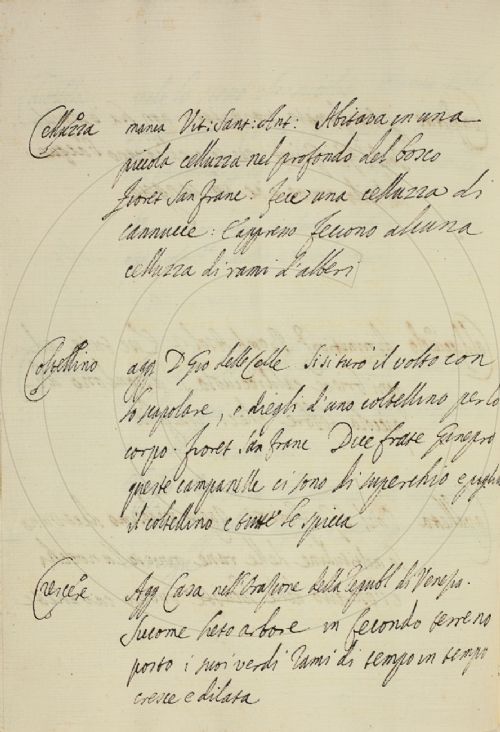 Celluzza manca Vit: Sant: Ant: Abitava in una
piccola celluzza nel profondo del bosco
Fioret San Franc: Fece una celluzza di
cannucce: E appresso fecono alcuna
celluzza di rami d'alberi
Coltellino agg D Gio delle Celle Si si turò il volto con
lo scapolare, e diegli d'uno coltellino per lo
corpo. Fioret San Franc Dice frate Ginepro
queste campanelle ci sono di superchio e piglia
il coltellino e tutte le spicca
Crescere Agg Casa nell'Orazione della Republ di Venezia.
Siccome lieto arbore in fecondo terreno
posto i suoi verdi rami di tempo in tempo
cresce e dilata